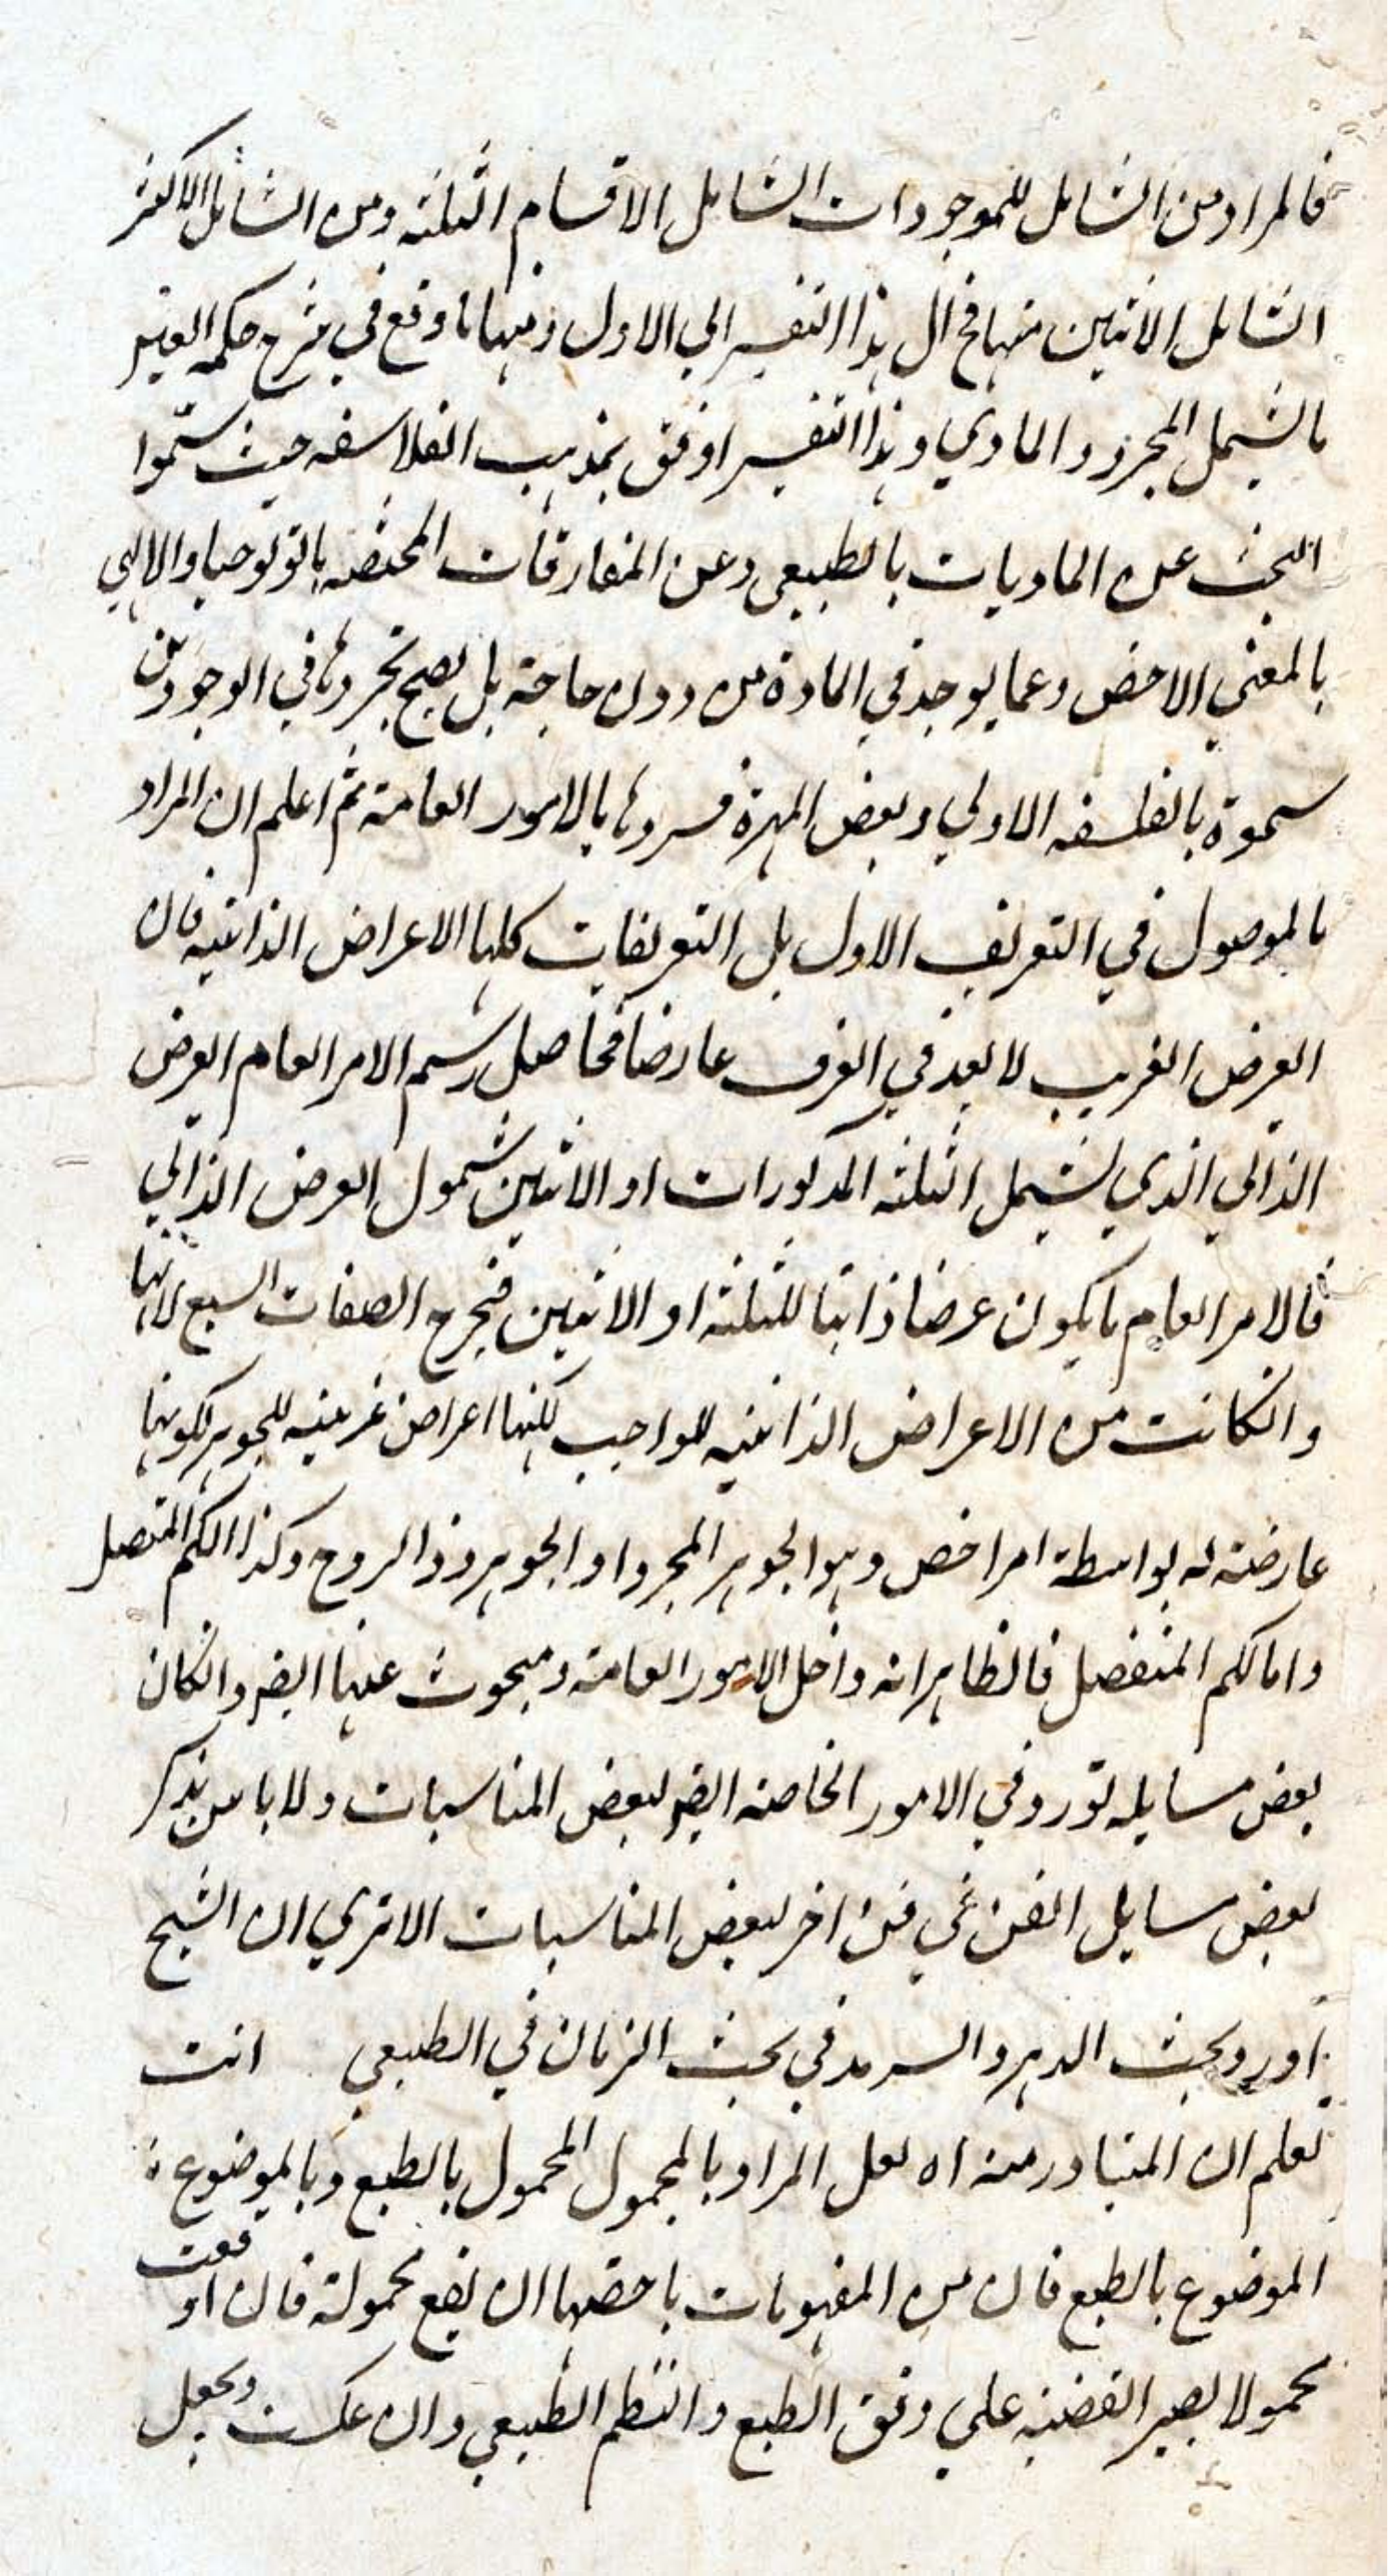 فالمراد من الشامل للموجودات الشامل الاقسام الثلثة ومن الشامل الاكثر
الشامل الاثنين منها فمال هذا التفسير الي الاول ومنها ما وقع في شرح حكمة العين
ما يشمل المجرد والمادي وهذا التفسير اوفق بمذهب الفلاسفه حيث سموا
البحث عن الماديات بالطبيعي وعن المفارقات المحضه باثولوجيا والالهي
بالمعني الاخص وعما يوجد في المادة من دون حاجة بل يصح تجردها في الوجودين
سموة بالفلسفه الاولي وبعض المهرة فسروها بالامور العامة ثم اعلم ان المراد
بالموصول في التعريف الاول بل التعريفات كلها الاعراض الذاتيه فان
العرض الغريب لا يعد في العرف عارضا فحاصل رسم الامر العام العرض
الذاتي الذي يشمل الثلثه المذكورات او الاثنين شمول العرض الذاتي
فالامر العام ما يكون عرضا ذاتيا للثلثة او الاثنين فخرج الصفات السبع لانها
وانكانت من الاعراض الذاتيه للواجب لكنها اعراض غريبه للجوهر لكونها
عارضة له بواسطة امر اخص وهو الجوهر المجرد او الجوهر ذو الروح وكذا الكم المتصل
واما الكم المنفصل فالظاهر انه داخل الامور العامة ومبحوث عنها ايضا وانكان
بعض مسايله تورد في الامور الخاصه ايضا لبعض المناسبات ولا باس بذكر
بعض مسايل الفن في فن اخر لبعض المناسبات الا تري ان الشيخ
اورد بحث الدهر والسرمد في بحث الزمان في الطبعي انت
تعلم ان المتبادر منه اه لعل المراد بالمحمول المحمول بالطبع وبالموضوع
الموضوع بالطبع فان من المفهومات ما حقها ان يقع محمولة فان اوقعت
محمولا يصير القضيه علي وفق الطبع والنظم الطبيعي وان عكست وجعل